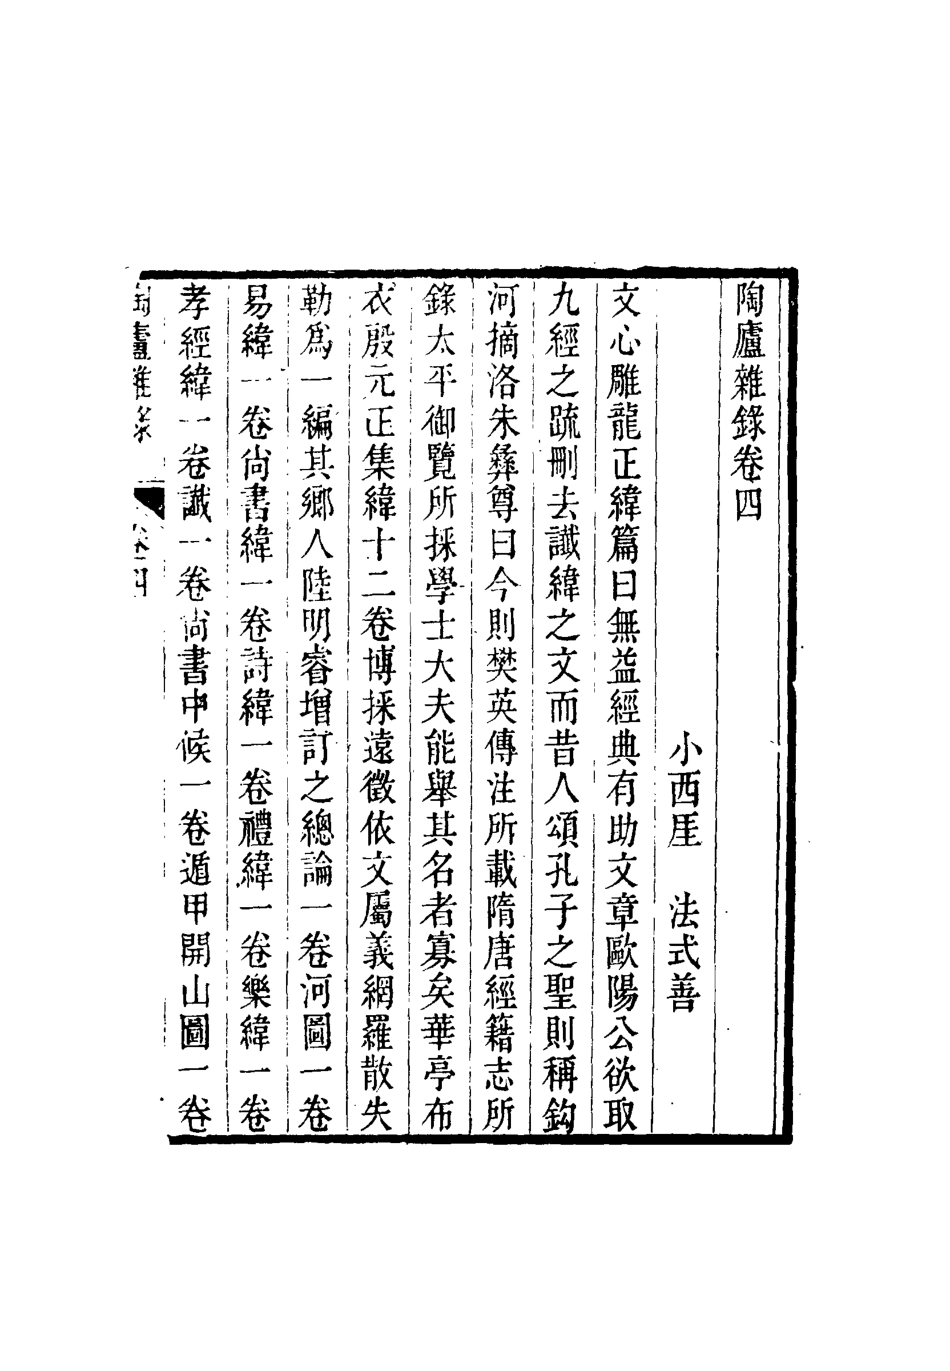 陶廬雜錄卷四
小西厓　法式善
文心雕龍正緯篇曰無益經典有助文章歐陽公欲取
九經之疏刪去讖緯之文而昔人頌孔子之聖則稱鈎
河摘洛朱彝尊曰今則樊英傳注所載隋唐經籍志所
錄太平御覽所採學士大夫能舉其名者寡矣華亭布
衣殷元正集緯十二卷博採遠徵依文屬義網羅散失
勒為一編其鄉人陸明睿增訂之總論一卷河圖一卷
易緯一卷尚書緯一卷詩緯一卷禮緯一卷樂緯一卷
孝經緯一卷讖一卷尚書中候一卷遁甲開山圖一卷
陶廬雜錄　卷四